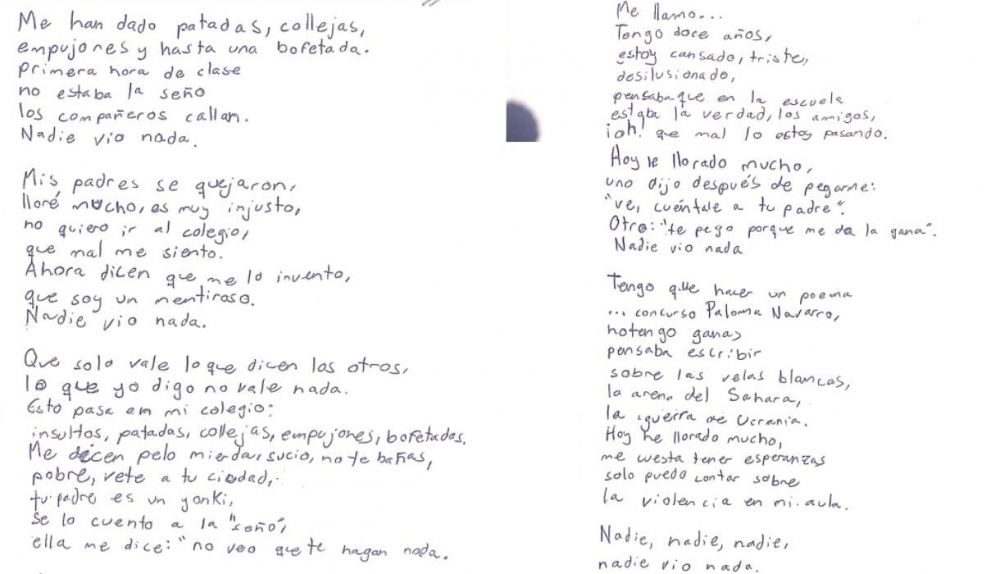 Me han dado patadas, collejas,
empujones y hasta una bofetada.
primera hora de clase
no estaba la seño
los compañeros callan.
Nadie vio nada.
Mis padres se quejaron,
lloré mucho, es muy injusto,
no quiero ir al colegio,
que mal me siento.
Ahora dicen que me lo invento,
que soy un mentiroso.
Nadie vio nada.
Que solo vale lo que dicen los otros,
lo que yo digo no vale nada.
Esto pasa em mi colegio:
insultos, patadas, collejas, empujones, bofetadas.
Me dicen pelo mierda, sucio, no te bañas,
pobre, vete a tu ciudad,
tu padre es un yonki,
se lo cuento a la "seño",
ella me dice: "no veo que te hagan nada.
Me llamo...
Tengo doce años,
estoy cansado, triste,
desilusionado,
pensaba que en la escuela
estaba la verdad, los amigos,
¡oh! que mal lo estoy pasando.
Hoy he llorado mucho,
uno dijo después de pegarme:
"ve, cuéntale a tu padre".
Otro: "te pego porque me da la gana".
Nadie vio nada
Tengo que hacer un poema
... concurso Paloma Navarro,
no tengo ganas
pensaba escribir
sobre las velas blancas,
la arena del Sahara,
la guerra de Ucrania.
Hoy he llorado mucho,
me cuesta tener esperanzas
solo puedo contar sobre
la violencia en mi aula.
Nadie, nadie, nadie,
nadie vio nada.